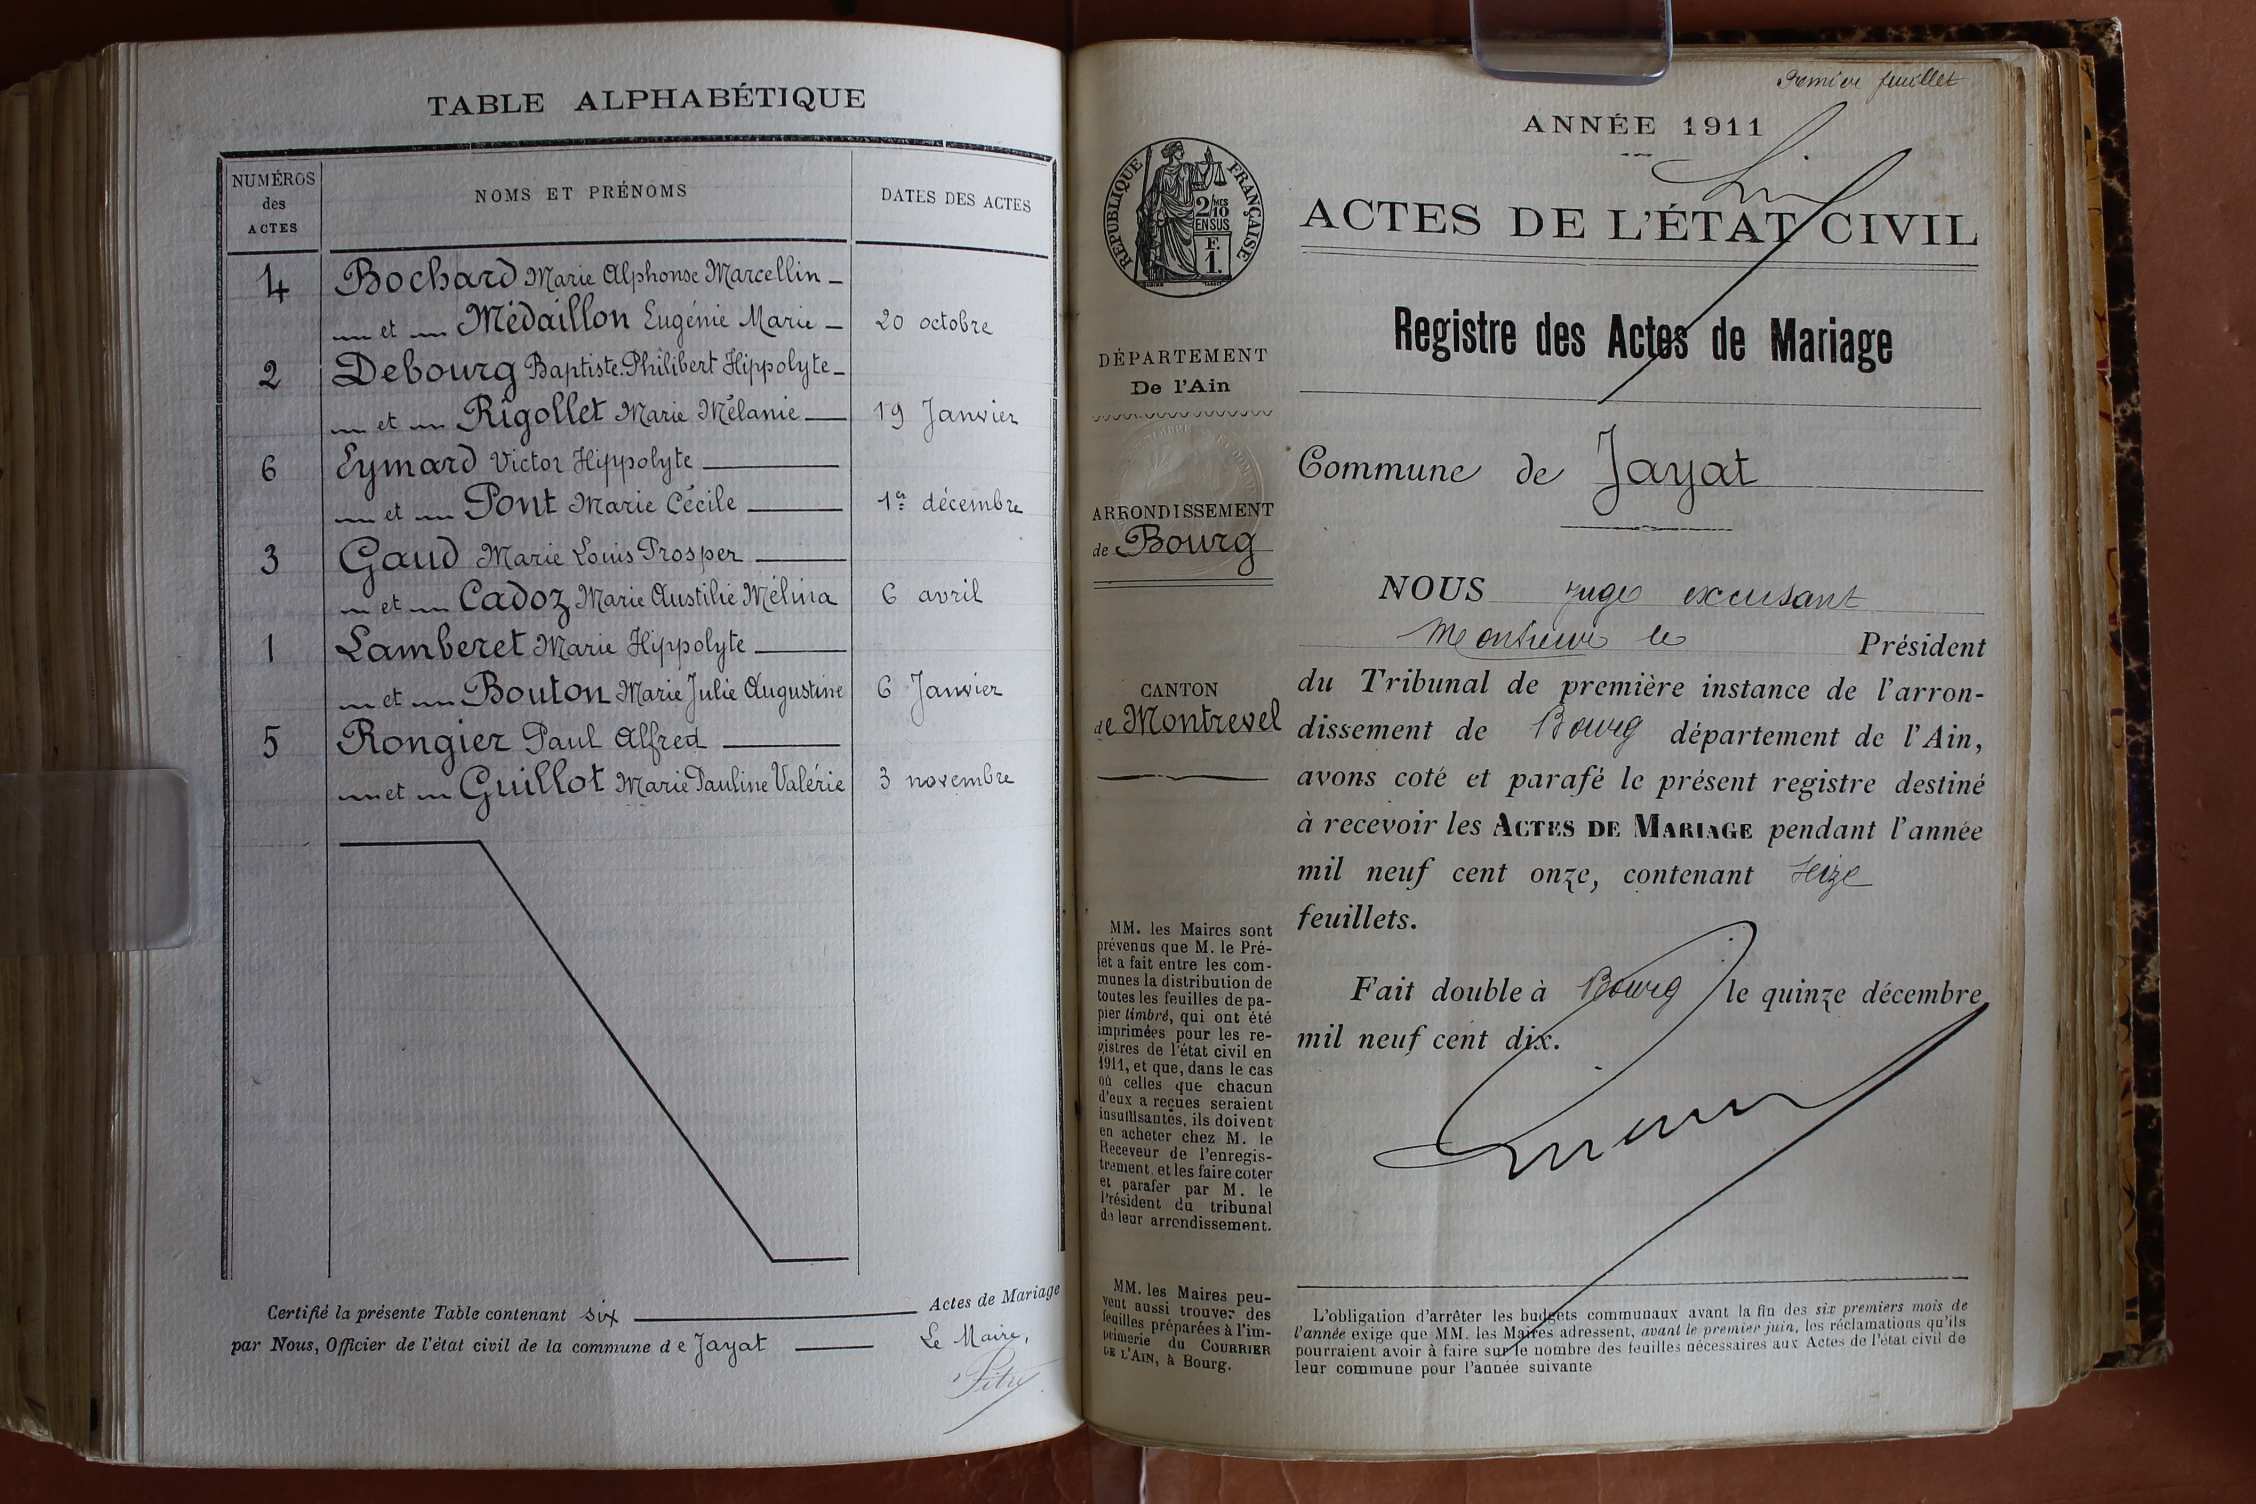 TABLE ALPHABÉTIQUE
NUMÉROS
des
ACTES
NOMS ET PRÉNOMS
DATES DES ACTES
4 Bochard Marie Alphonse Marcellin
et Médaillon Eugénie Marie 20 octobre
2 Debourg Baptiste Philibert Hippolyte
et Rigollet Marie Mélanie 19 Janvier
6 Eymard Victor Hippolyte
et Pont Marie Cécile 1er décembre
3 Gaud Marie Louis Prosper
et Cadoz Marie Austilie Mélina 6 avril
1 Lamberet Marie Hippolyte
et Bouton Marie Julie Augustine 6 Janvier
5 Rongier Paul Alfred
et Guillot Marie Pauline Valérie 3 novembre
Certifié la présente Table contenant six Actes de Mariage
par Nous, Officier de l'état civil de la commune de Jayat
Le Maire,
Premier feuillet
ANNÉE 1911
RÉPUBLIQUE FRANÇAISE
2/10
MES
EN SUS
F.
1.
ACTES DE L'ÉTAT CIVIL
Registre des Actes de Mariage
DÉPARTEMENT
De l'Ain
ARRONDISSEMENT
de Bourg
CANTON
de Montrevel
MM. les Maires sont
prévenus que M. le Pré-
fet a fait entre les com-
munes la distribution de
toutes les feuilles de pa-
pier timbré, qui ont été
imprimées pour les re-
gistres de l'état civil en
1911, et que, dans le cas
où celles que chacun
d'eux a reçues seraient
insuffisantes, ils doivent
en acheter chez M. le
Receveur de l'enregis-
trement, et les faire coter
et parafer par M. le
Président du tribunal
de leur arrondissement.
MM. les Maires peu-
vent aussi trouver des
feuilles préparées à l'im-
primerie du COURRIER
DE L'AIN, à Bourg.
Commune de Jayat
NOUS juge excusant
Monsieur le Président
du Tribunal de première instance de l'arron-
dissement de Bourg département de l'Ain,
avons coté et parafé le présent registre destiné
à recevoir les ACTES DE MARIAGE pendant l'année
mil neuf cent onze, contenant seize
feuillets.
Fait double à Bourg le quinze décembre
mil neuf cent dix.
L'obligation d'arrêter les budgets communaux avant la fin des six premiers mois de
l'année exige que MM. les Maires adressent, avant le premier juin, les réclamations qu'ils
pourraient avoir à faire sur le nombre des feuilles nécessaires aux Actes de l'état civil de
leur commune pour l'année suivante